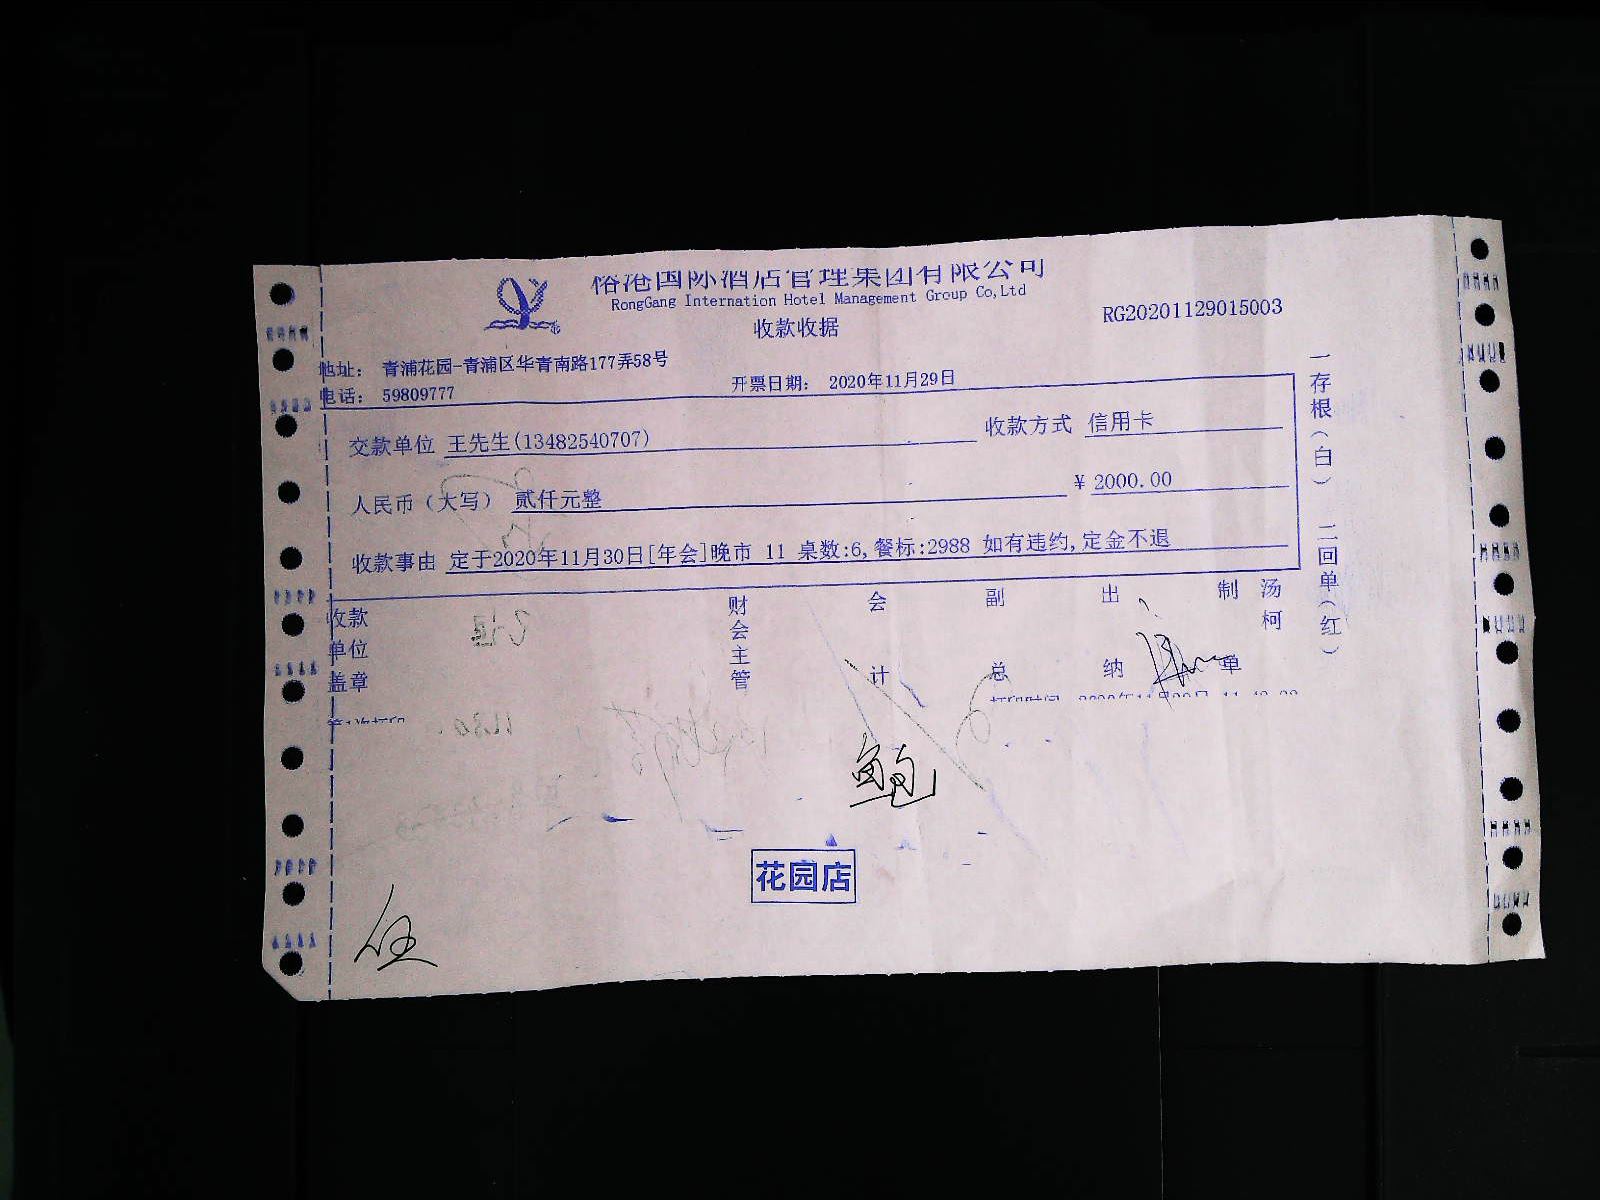 裕港国际酒店管理集团有限公司
RongGang Internation Hotel Management Group Co,Ltd
收款收据
RG20201129015003
地址: 青浦花园-青浦区华青南路177弄58号
电话: 59809777
开票日期: 2020年11月29日
交款单位 王先生(13482540707)
收款方式 信用卡
人民币（大写） 贰仟元整
¥ 2000.00
收款事由 定于2020年11月30日[年会]晚市 11 桌数:6,餐标:2988 如有违约,定金不退
收款单位盖章
财会主管
会计
副总
出纳
制单
汤柯
一存根（白） 二回单（红）
花园店